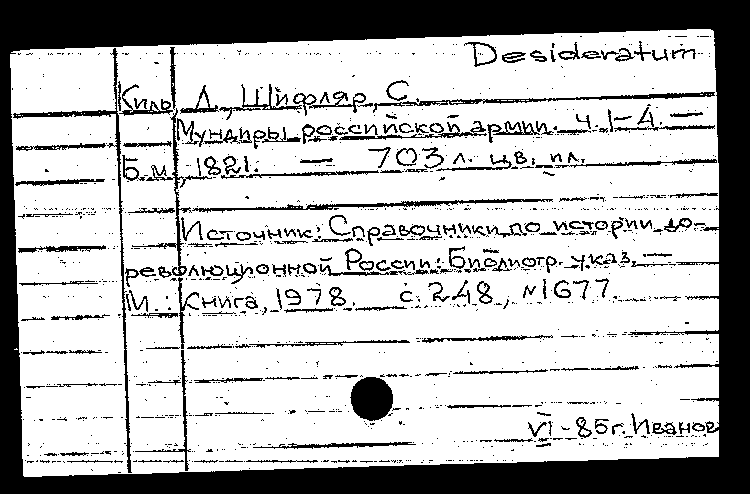 Desideratum
Киль, Л., Шифляр, С.
Мундиры российской армии. Ч. 1-4. —
Б.м., 1821. — 703 л. цв. ил.
Источник: Справочники по истории до-
революционной России: Библиогр. указ. —
М.: Книга, 1978. с. 248, №1677.
VI - 85г. Иванов